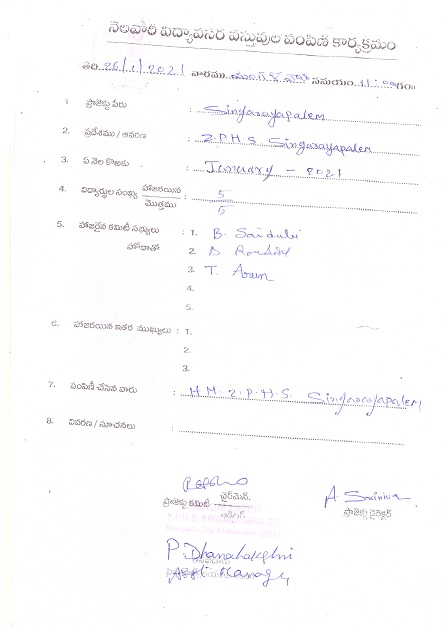 నెలవారీ విద్యావసర వస్తువుల పంపిణి కార్యక్రమం
తేది 26/1/2021 వారము మంగళ వారం సమయం 11:00గం॥
1. ప్రాజెక్టు పేరు : Singarayapalem
2. ప్రదేశము / ఆవరణ : Z.P.H.S. Singarayapalem
3. ఏ నెల కొఱకు : January - 2021
4. విద్యార్థుల సంఖ్య హాజరయిన : 5
మొత్తము 5
5. హాజరైన కమిటీ సభ్యులు : 1. B. Saidulu
హోదాతో 2. D
3. T. Arun
4.
5.
6. హాజరయిన ఇతర ముఖ్యులు : 1.
2.
3.
7. పంపిణీ చేసిన వారు : H.M. Z.P.H.S. Singarayapalem
8. వివరణ / సూచనలు :
ప్రాజెక్టు కమిటీ ఛైర్మెన్.
A. Srinivas
ప్రాజెక్టు డైరెక్టర్
Z.P.H.S. SINGARAYAPALEM
P. Dhanalakshmi